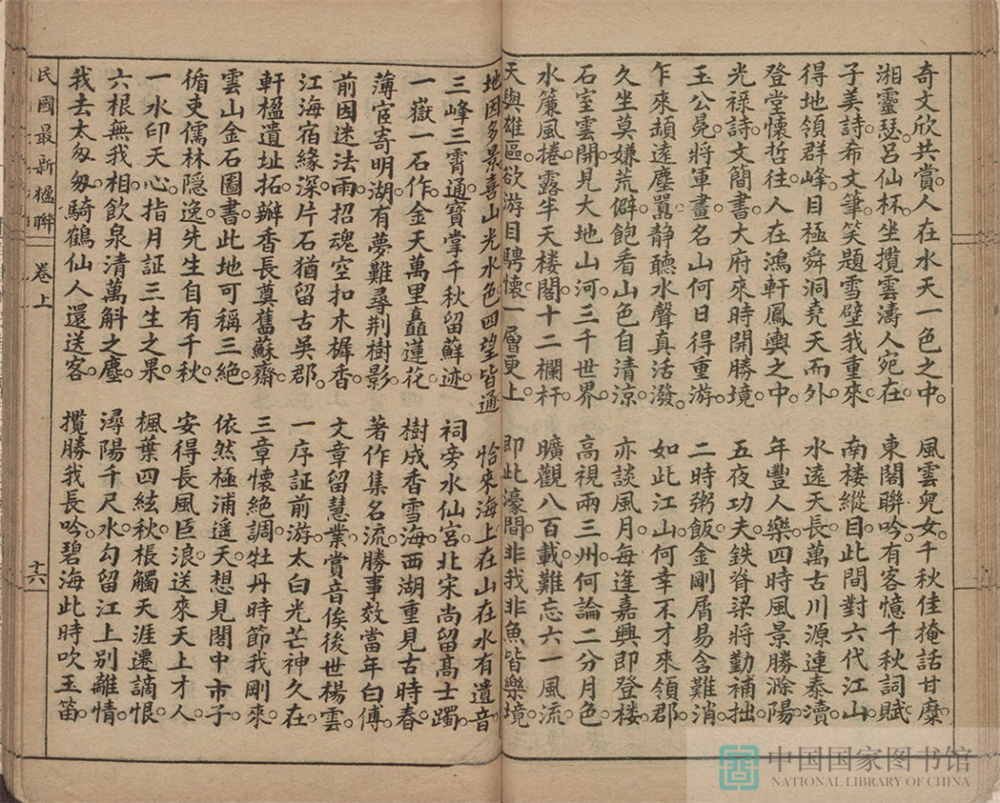 奇文欣共賞。人在水天一色之中。
風雲兒女。千秋佳掩話甘糜。
湘靈瑟。呂仙杯。坐攬雲濤人宛在。
東閣聯吟。有客憶千秋詞賦
子美詩。希文筆。笑題雪壁我重來。
南楼縱目。此間對六代江山。
得地領群峰。目極舜洞堯天而外。
水遠天長。萬古川源連泰瀆。
登堂懷哲往。人在鴻軒鳳輿之中。
年豐人樂。四時風景勝滁陽。
光祿詩文簡書。大府來時開勝境。
五夜功夫。鉄脊梁將勤補拙。
玉公冕。將軍畫。名山何日得重游。
二時粥飯。金剛屑易含難消。
乍來頲遠塵囂。静聽水聲真活潑。
如此江山。何幸不才來領郡。
久坐莫嫌荒僻。飽看山色自清凉。
亦談風月。每逢嘉興即登楼。
石室雲開。見大地山河。三千世界。
高視兩三州。何論二分月色。
水簾風捲。露半天楼閣。十二欄杆。
曠觀八百載。難忘六一風流。
天與雄區。欲游目騁懷。一層更上
即此濠間。非我非魚皆樂境。
地因多景。喜山光水色。四望皆通
恰來海上。在山在水有遺音
三峰三霄通。寳掌千秋留蘚迹。
祠旁水仙宮。北宋尚留高士躅。
一嶽一石作。金天萬里矗蓮花。
樹成香雪海。西湖重見古時春。
薄宦寄明湖。有夢難尋荆樹影
著作集名流。勝事效當年白傅
前因迷法雨。招魂空扣木樨香。
文章留慧業。賞音俟後世楊雲。
江海宿緣深。片石猶留古吳郡。
一序証前游。太白光芒神久在。
軒楹遺址拓。辦香長奠舊蘇齋。
三章懷絶調。牡丹時節我剛來。
雲山金石圖書。此地可稱三絶。
依然極浦遥天。想見閣中市子。
循吏儒林隱逸。先生自有千秋。
安得長風巨浪。送來天上才人。
一水印天心。指月証三生之果。
楓葉四絃秋。棖觸天涯遷謫恨。
六根無我相。飲泉清萬斛之塵。
潯陽千尺水。勾留江上别離情。
我去太匆匆。騎鶴仙人還送客。
攬勝我長吟。碧海此時吹玉笛。
民國最新楹聯
卷上
十六
中国国家图书馆
NATIONAL LIBRARY OF CHINA